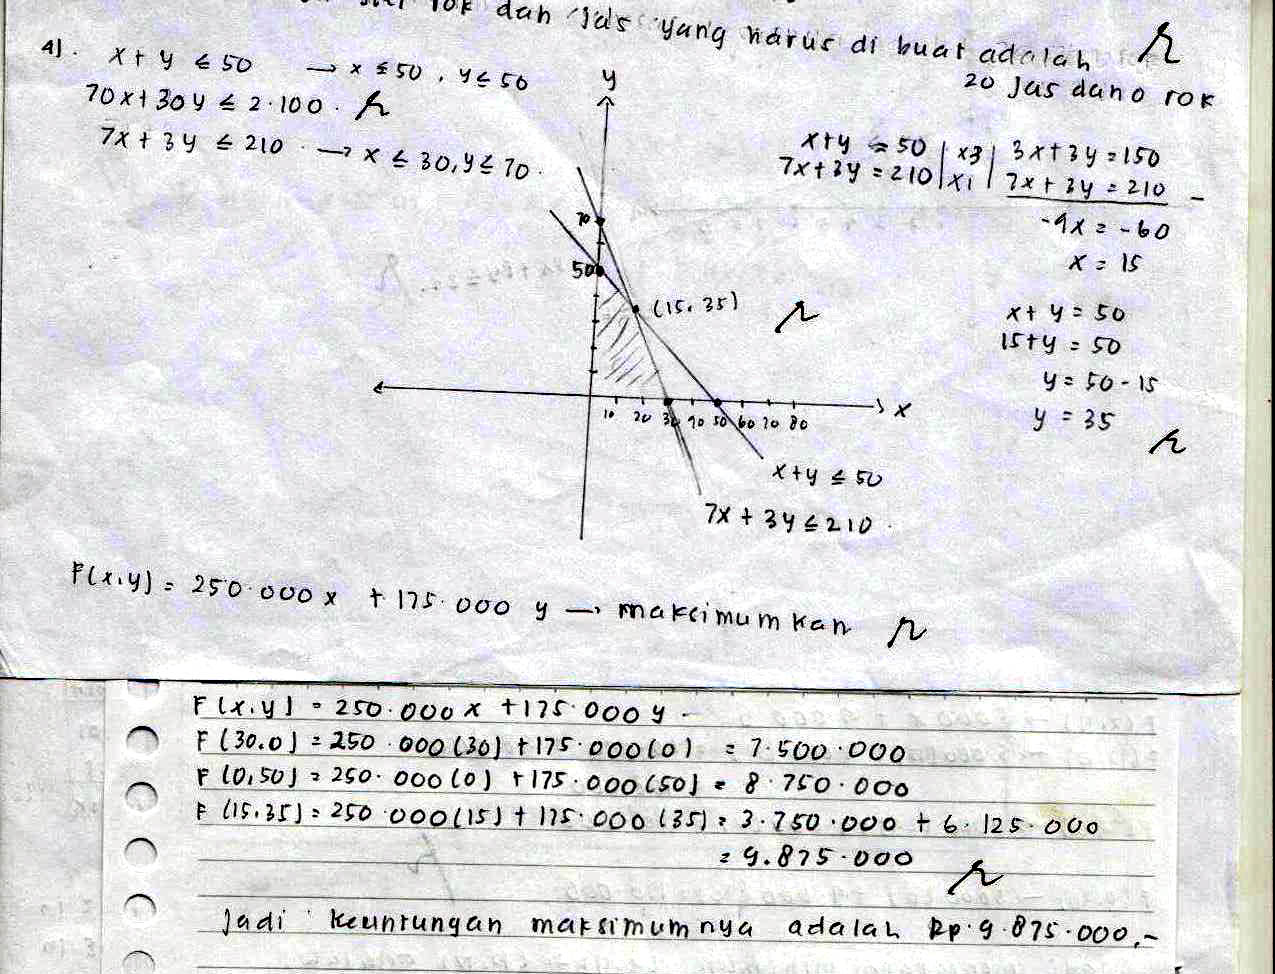 rok dan jas yang harus di buat adalah
20 Jas dan 0 rok
4). x + y ≤ 50 → x ≤ 50, y ≤ 50
70x + 30y ≤ 2.100.
7x + 3y ≤ 210 → x ≤ 30, y ≤ 70.
y
70
50
(15, 35)
10 20 30 40 50 60 70 80
x
x + y ≤ 50
7x + 3y ≤ 210.
x + y = 50 | x3 | 3x + 3y = 150
7x + 3y = 210 | x1 | 7x + 3y = 210 -
-4x = -60
x = 15
x + y = 50
15 + y = 50
y = 50 - 15
y = 35
F(x,y) = 250.000 x + 175.000 y → maksimumkan
F(x.y) = 250.000x + 175.000y -
F(30.0) = 250.000(30) + 175.000(0) = 7.500.000
F(0,50) = 250.000(0) + 175.000(50) = 8.750.000
F(15.35) = 250.000(15) + 175.000(35) = 3.750.000 + 6.125.000
= 9.875.000
Jadi keuntungan maksimumnya adalah Rp.9.875.000,-